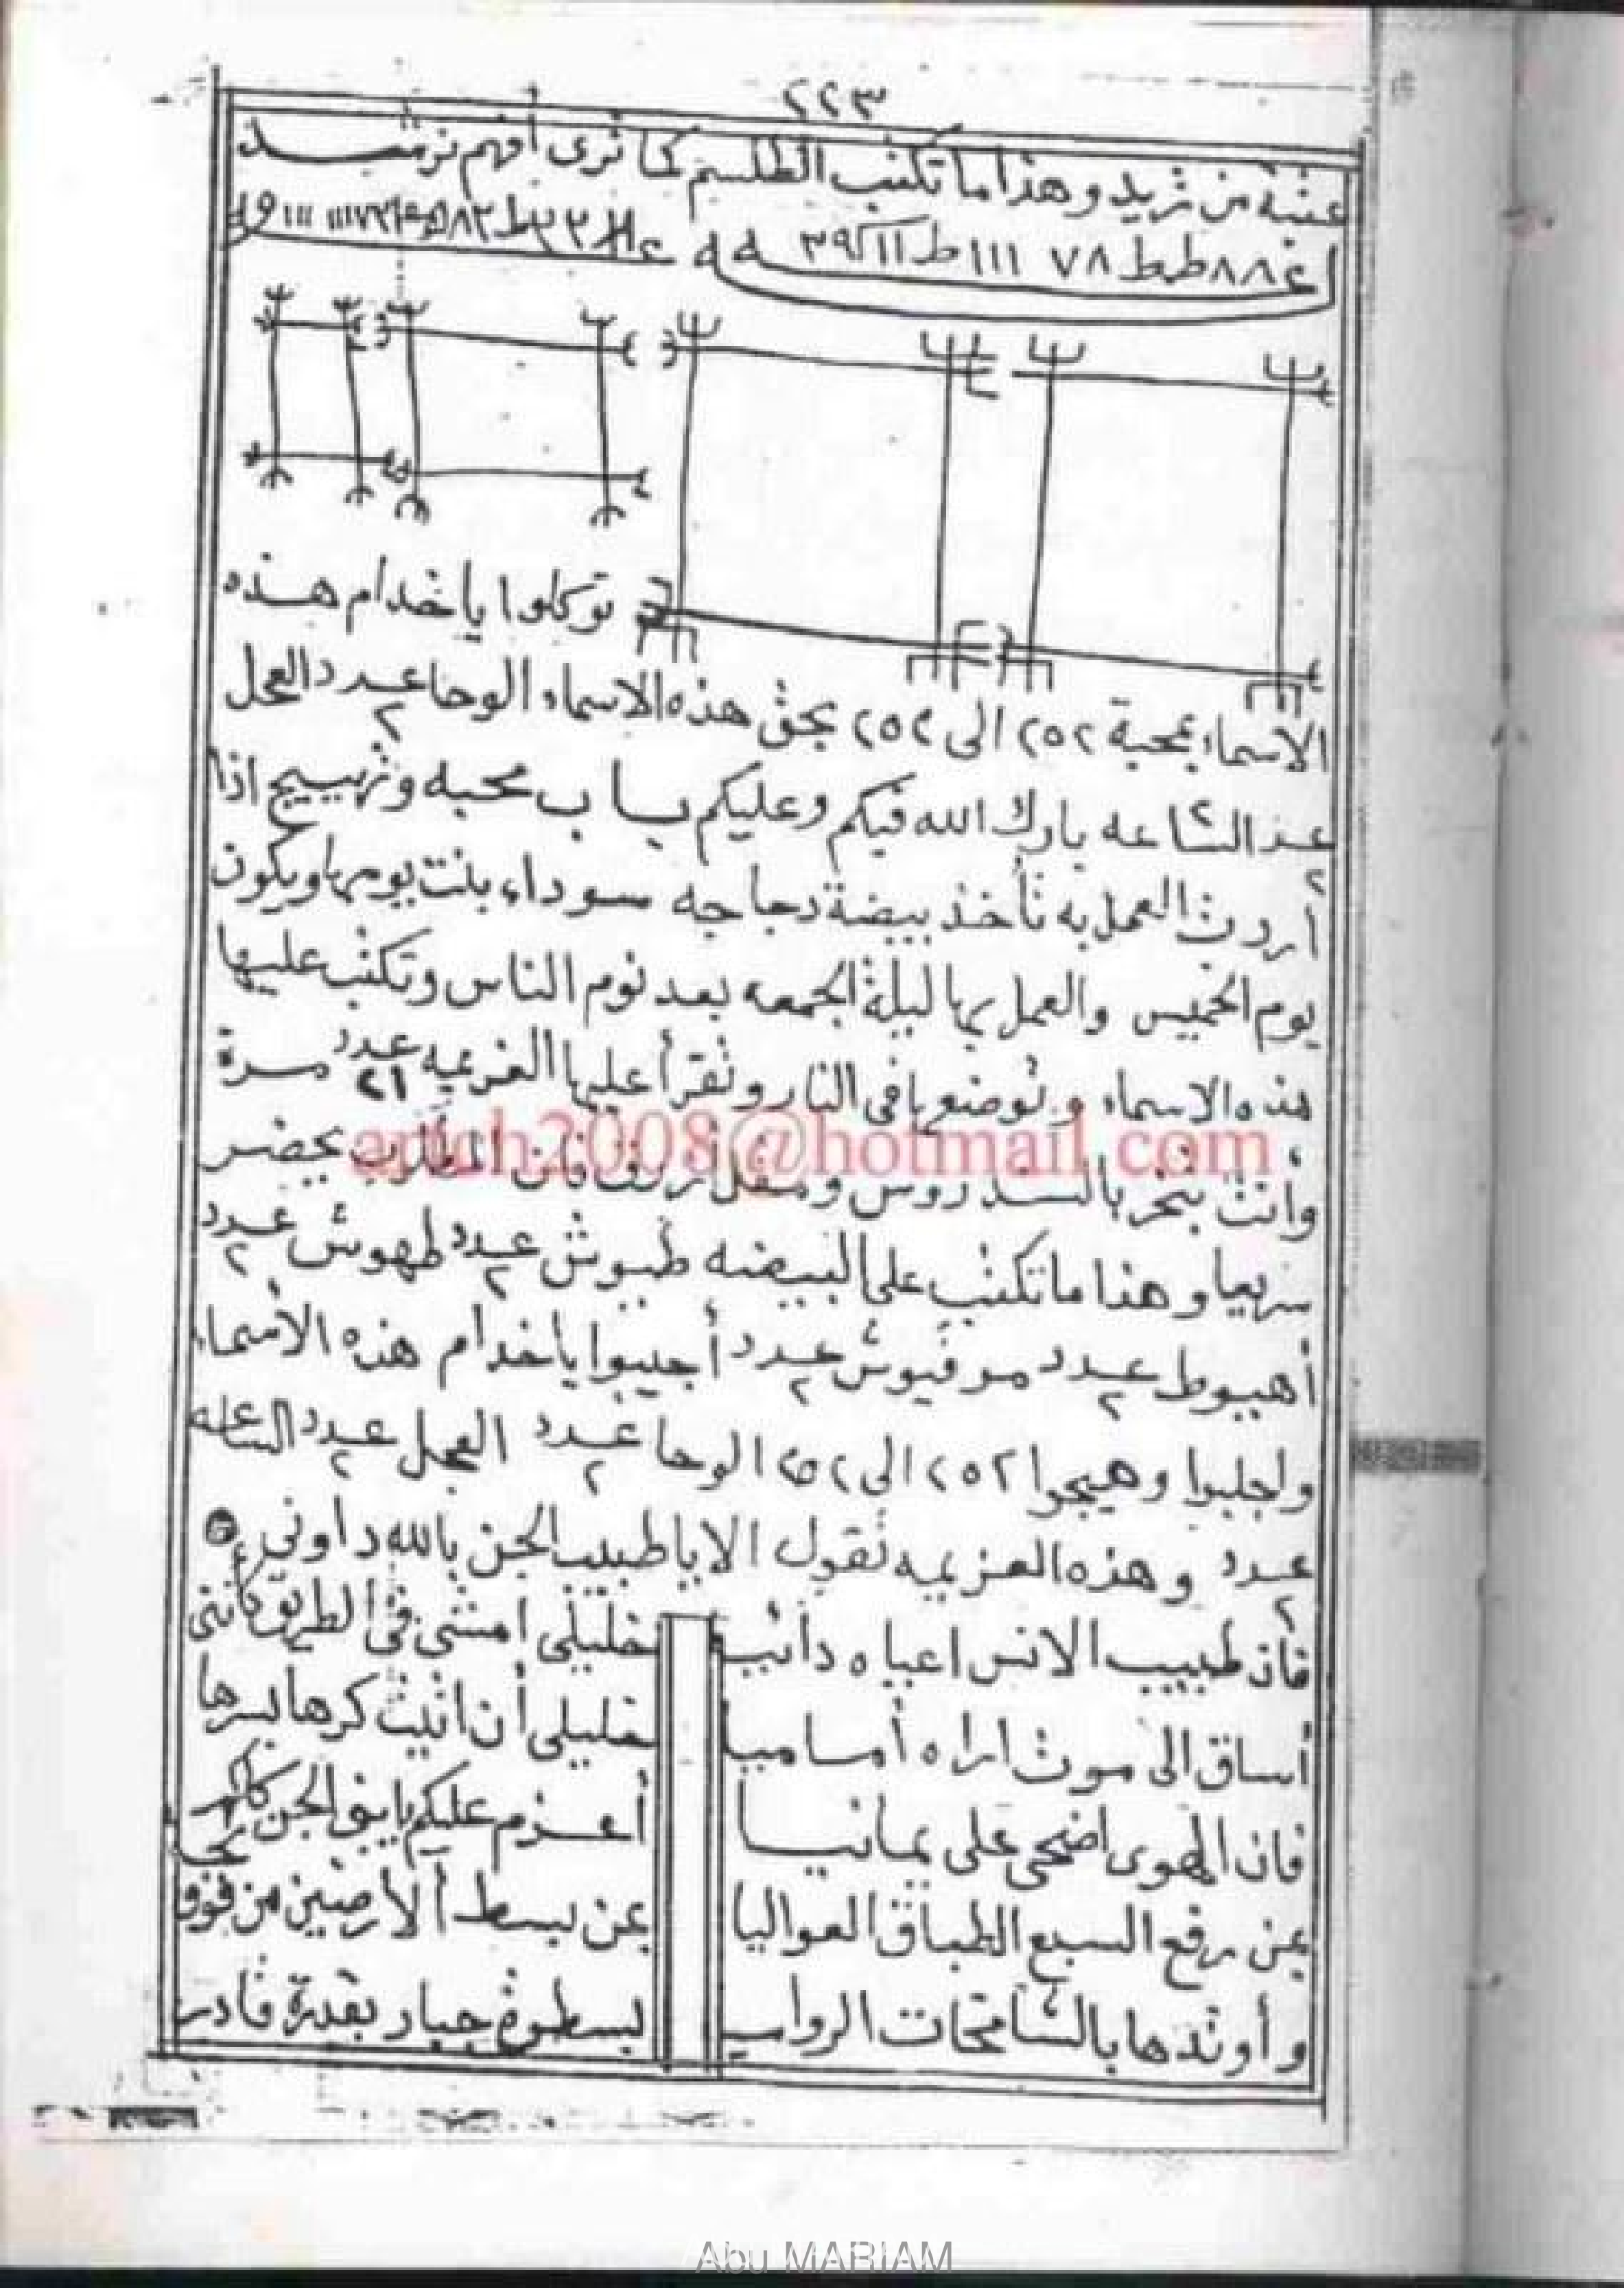 ٢٢٣
عتبة من تريد وهذا ما تكتب الطلسم كما ترى افهم ترشد
٨٨طط ٧٨ ١١١ ط
توكلوا ياخدام هذه
الاسماء بمحبة ٢٥٢ الى ٢٥٢ بحق هذه الاسماء الوحا عدد ٢ العجل
عدد ٢ الساعه ٢ بارك الله فيكم وعليكم باب محبه وتهييج اذا
أردت العمل به تأخذ بيضة دجاجه سوداء بنت يومها ويكون
يوم الخميس والعمل بها ليلة الجمعه بعد نوم الناس وتكتب عليها
هذه الاسماء وتوضعها فى النار وتقرأ عليها العزيمه عدد ٢١ مرة
وانت تبخر بالسندروس ومقل ازرق فان المطلوب يحضر
arieh2008@hotmail.com
سريعا وهذا ما تكتب على البيضه طبوش عدد ٢ طهوش عدد ٢
أهبوط عدد ٢ مرفيوش عدد ٢ أجيبوا ياخدام هذه الأسماء
واجلبوا وهيجوا ٢٥٢ الى ٢٥٢ الوحا عدد ٢ العجل عدد ٢ الساعه
عدد ٢ وهذه العزيمه تقول الا ياطبيب الجن بالله داوني
فان طبيب الانس اعياه دائيا خليلى امشى فى الطريق كأننى
أساق الى موت اراه أماميا خليلى أن اتيت كرها بسرها
فان الهوى اضحى على يمانيا أعزم عليكم يابنى الجن كلهم
بمن رفع السبع الطباق العواليا بمن بسط الأرضين من فوق
وأوتدها بالشامخات الرواسيا بسطوة جبار بقدرة قادر
Abu MARIAM